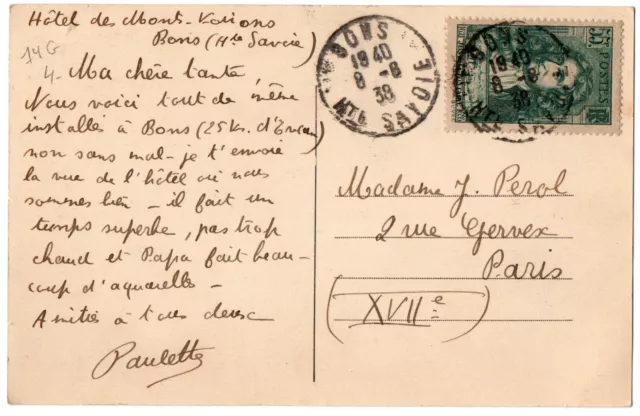 Hôtel des Mont-Voirons
Bons (Hte Savoie)
14G
4-
Ma chère tante,
Nous voici tout de même
installés à Bons (25 k. d'Evian)
non sans mal - je t'envoie
la vue de l'hôtel où nous
sommes bien - il fait un
temps superbe, pas trop
chaud et Papa fait beau-
coup d'aquarelles -
Amitiés à tous deux
Paulette
BONS
19 40
8 -8
38
HTE SAVOIE
BONS
19 40
8 -8
38
POSTES
RF
Madame J. Perol
2 rue Gervex
Paris
(XVIIe)